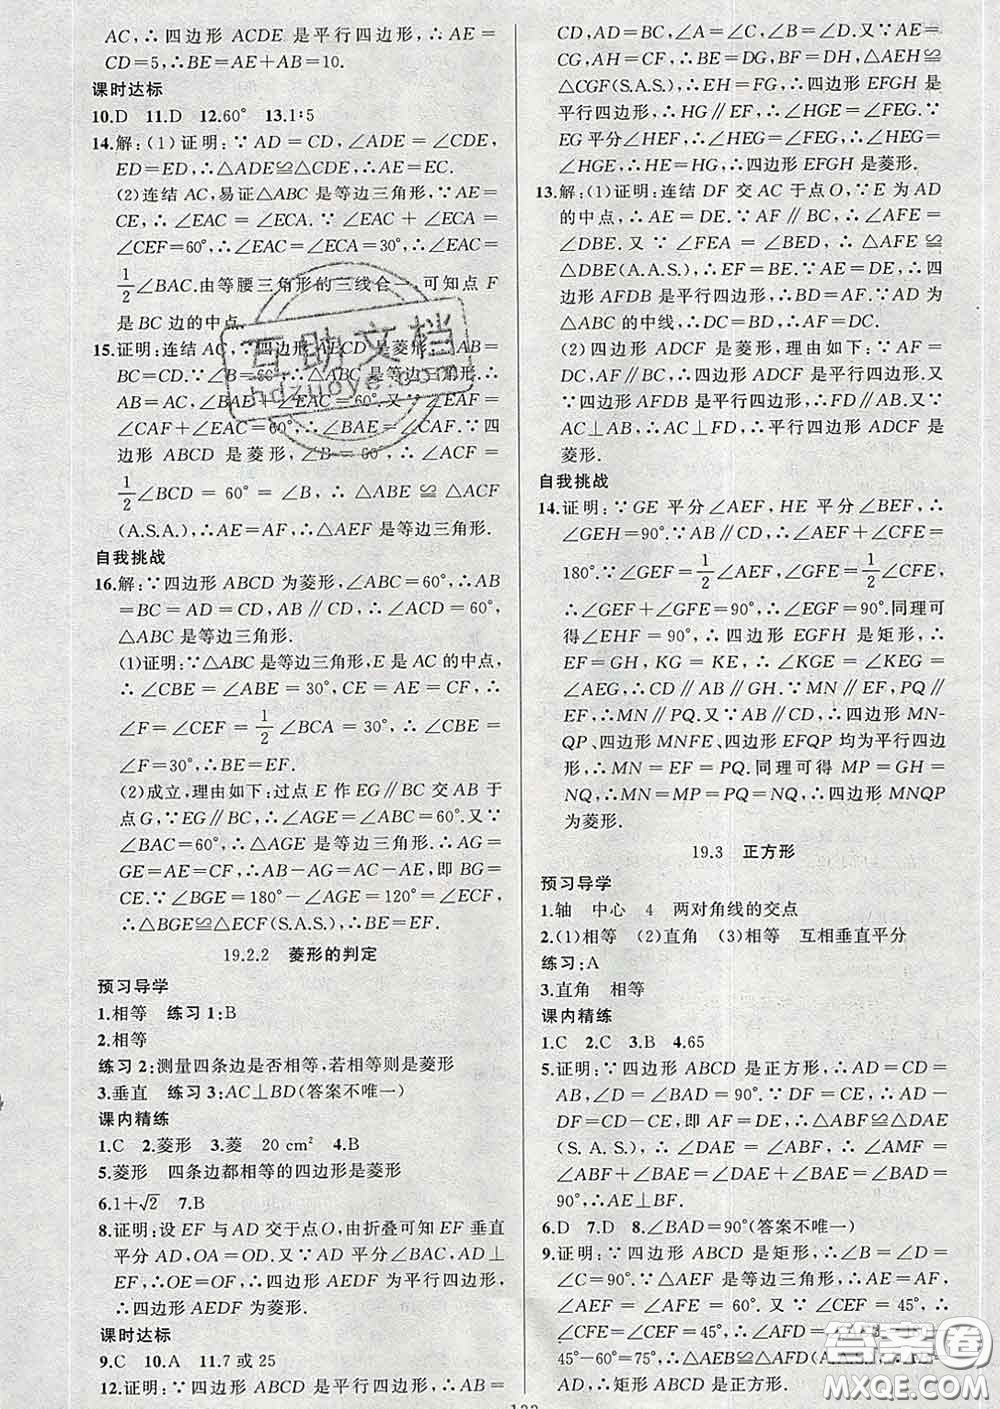 AC,∴四边形 ACDE 是平行四边形,∴AE=
CD=5,∴BE=AE+AB=10.
课时达标
10.D 11.D 12.60° 13.1∶5
14.解:(1)证明:∵AD=CD,∠ADE=∠CDE,
ED=ED,∴△ADE≌△CDE,∴AE=EC.
(2)连结 AC,易证△ABC 是等边三角形.∵AE=
CE,∴∠EAC=∠ECA.∵∠EAC+∠ECA=
∠CEF=60°,∴∠EAC=∠ECA=30°,∴∠EAC=
1/2∠BAC.由等腰三角形的三线合一 可知点 F
是 BC 边的中点.
15.证明:连结 AC,∵四边形 ABCD 是菱形,∴AB=
BC=CD.∵∠B=60°,∴△ABC 是等边三角形.∴
AB=AC,∠BAE+∠EAC=60°.又∵∠EAF=
∠CAF+∠EAC=60°,∴∠BAE=∠CAF.∵四
边形 ABCD 是菱形,∠B=60°,∴∠ACF=
1/2∠BCD=60°=∠B,∴△ABE≌△ACF
(A.S.A.),∴AE=AF,∴△AEF 是等边三角形.
自我挑战
16.解:∵四边形 ABCD 为菱形,∠ABC=60°,∴AB
=BC=AD=CD,AB∥CD,∴∠ACD=60°,
△ABC 是等边三角形.
(1)证明:∵△ABC 是等边三角形,E 是 AC 的中点,
∴∠CBE=∠ABE=30°,CE=AE=CF,∴
∠F=∠CEF=1/2∠BCA=30°,∴∠CBE=
∠F=30°,∴BE=EF.
(2)成立,理由如下:过点 E 作 EG∥BC 交 AB 于
点 G,∵EG∥BC,∴∠AGE=∠ABC=60°.又∵
∠BAC=60°,∴△AGE 是等边三角形.∴AG=
GE=AE=CF,∴AB-AG=AC-AE,即 BG=
CE.∵∠BGE=180°-∠AGE=120°=∠ECF,
∴△BGE≌△ECF(S.A.S.),∴BE=EF.
19.2.2 菱形的判定
预习导学
1.相等 练习 1:B
2.相等
练习 2:测量四条边是否相等,若相等则是菱形
3.垂直 练习 3:AC⊥BD(答案不唯一)
课内精练
1.C 2.菱形 3.菱 20 cm² 4.B
5.菱形 四条边都相等的四边形是菱形
6.1+√2 7.B
8.证明:设 EF 与 AD 交于点 O,由折叠可知 EF 垂直
平分 AD,OA=OD.又∵AD 平分∠BAC,AD⊥
EF,∴OE=OF,∴四边形 AEDF 为平行四边形,
∴四边形 AEDF 为菱形.
课时达标
9.C 10.A 11.7 或 25
12.证明:∵四边形 ABCD 是平行四边形,∴AB=
CD,AD=BC,∠A=∠C,∠B=∠D.又∵AE=
CG,AH=CF,∴BE=DG,BF=DH,∴△AEH≌
△CGF(S.A.S.),∴EH=FG,∴四边形 EFGH 是
平行四边形,∴HG∥EF,∴∠HGE=∠FEG.∵
EG 平分∠HEF,∴∠HEG=∠FEG,∴∠HEG=
∠HGE,∴HE=HG,∴四边形 EFGH 是菱形.
13.解:(1)证明:连结 DF 交 AC 于点 O,∵E 为 AD
的中点,∴AE=DE.∵AF∥BC,∴∠AFE=
∠DBE.又∵∠FEA=∠BED,∴△AFE≌
△DBE(A.A.S.),∴EF=BE.∵AE=DE,∴四
边形 AFDB 是平行四边形,∴BD=AF.∵AD 为
△ABC 的中线,∴DC=BD,∴AF=DC.
(2)四边形 ADCF 是菱形,理由如下:∵AF=
DC,AF∥BC,∴四边形 ADCF 是平行四边形.又
∵四边形 AFDB 是平行四边形,∴FD∥AB.又∵
AC⊥AB,∴AC⊥FD,∴平行四边形 ADCF 是
菱形.
自我挑战
14.证明:∵GE 平分∠AEF,HE 平分∠BEF,∴
∠GEH=90°.∵AB∥CD,∴∠AEF+∠CFE=
180°.∵∠GEF=1/2∠AEF,∠GFE=1/2∠CFE,
∴∠GEF+∠GFE=90°,∴∠EGF=90°.同理可
得∠EHF=90°,∴四边形 EGFH 是矩形,∴
EF=GH,KG=KE,∴∠KGE=∠KEG=
∠AEG,∴CD∥AB∥GH.∵MN∥EF,PQ∥EF,
∴MN∥PQ.又∵AB∥CD∥GH,∴四边形 MN-
QP、四边形 MNFE、四边形 EFQP 均为平行四边
形,∴MN=EF=PQ.同理可得 MP=GH=
NQ,∴MN=MP=PQ=NQ,∴四边形 MNQP
为菱形.
19.3 正方形
预习导学
1.轴 中心 4 两对角线的交点
2.(1)相等 (2)直角 (3)相等 互相垂直平分
练习:A
3.直角 相等
课内精练
1.C 2.C 3.B 4.65
5.证明:∵四边形 ABCD 是正方形,∴AD=CD=
AB,∠D=∠BAD=90°.∵DF=CE,∴AD-
DF=CD-CE,即 AF=DE,∴△ABF≌△DAE
(S.A.S.),∴∠DAE=∠ABF,∴∠AMF=
∠ABF+∠BAE=∠DAE+∠BAE=∠BAD=
90°,∴AE⊥BF.
6.D 7.D 8.∠BAD=90°(答案不唯一)
9.证明:∵四边形 ABCD 是矩形,∴∠B=∠D=
∠C=90°.∵△AEF 是等边三角形,∴AE=AF,
∠AEF=∠AFE=60°.又∠CEF=45°,∴
∠CFE=∠CEF=45°,∴∠AFD=
45°-60°=75°,∴△AEB≌△AFD(A.A.S.),∴
AD,∴矩形 ABCD 是正方形.
互助文档
hdzuoye.com
答案圈
MXQE.COM